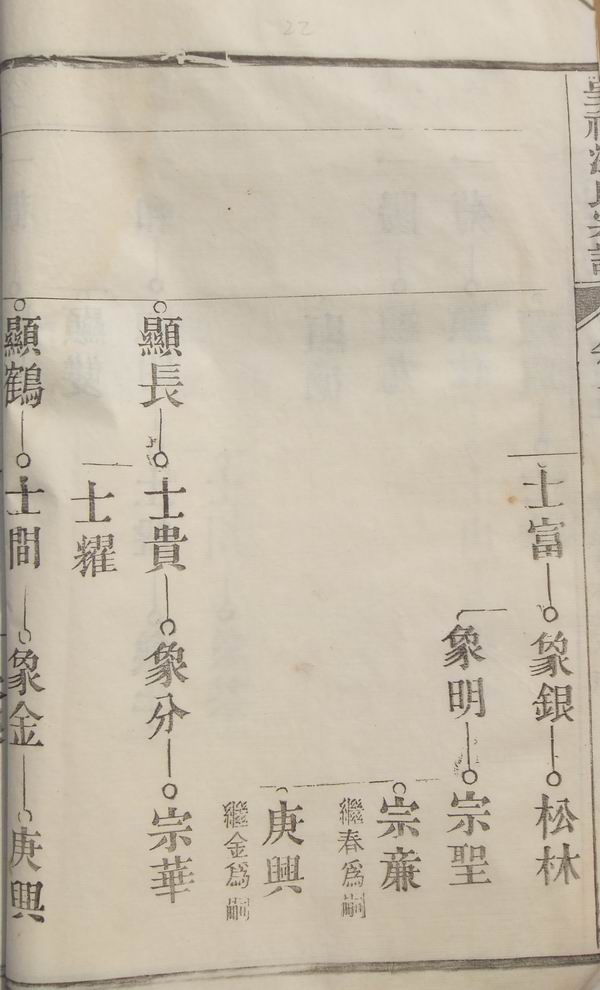 22
氏宗譜
士富
象銀
松林
象明
宗聖
宗亷
繼春為嗣
庚興
繼金為嗣
顯長
士貴
象分
宗華
士糴
顯鶴
士間
象金
庚興